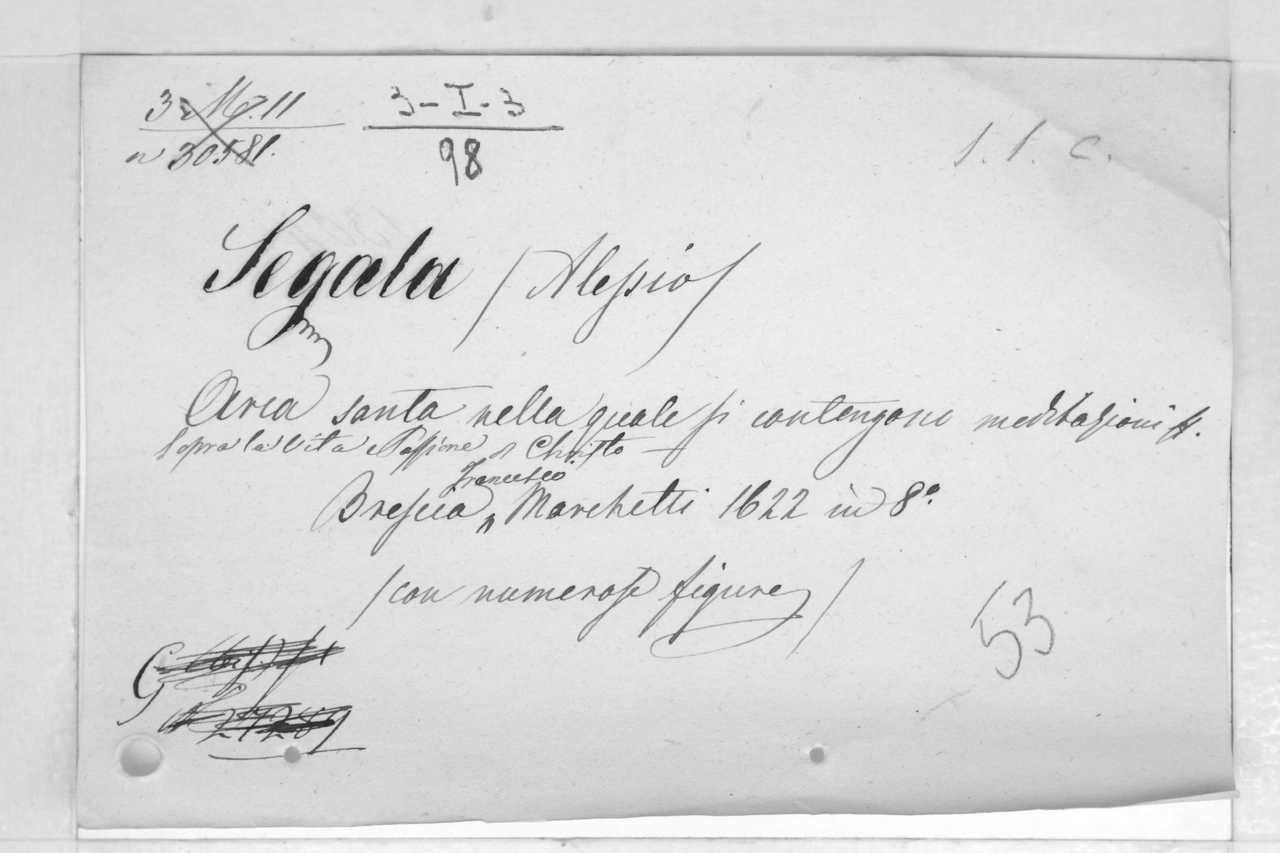 3-I-3
98
n 30581.
S. S. C.
Segala (Alessio)
Arca santa nella quale si contengono meditazioni
sopra la Vita e Passione di Christo
Francesco
Brescia, Marchetti 1622 in 8°.
(con numerose figure)
53
G
n 27289